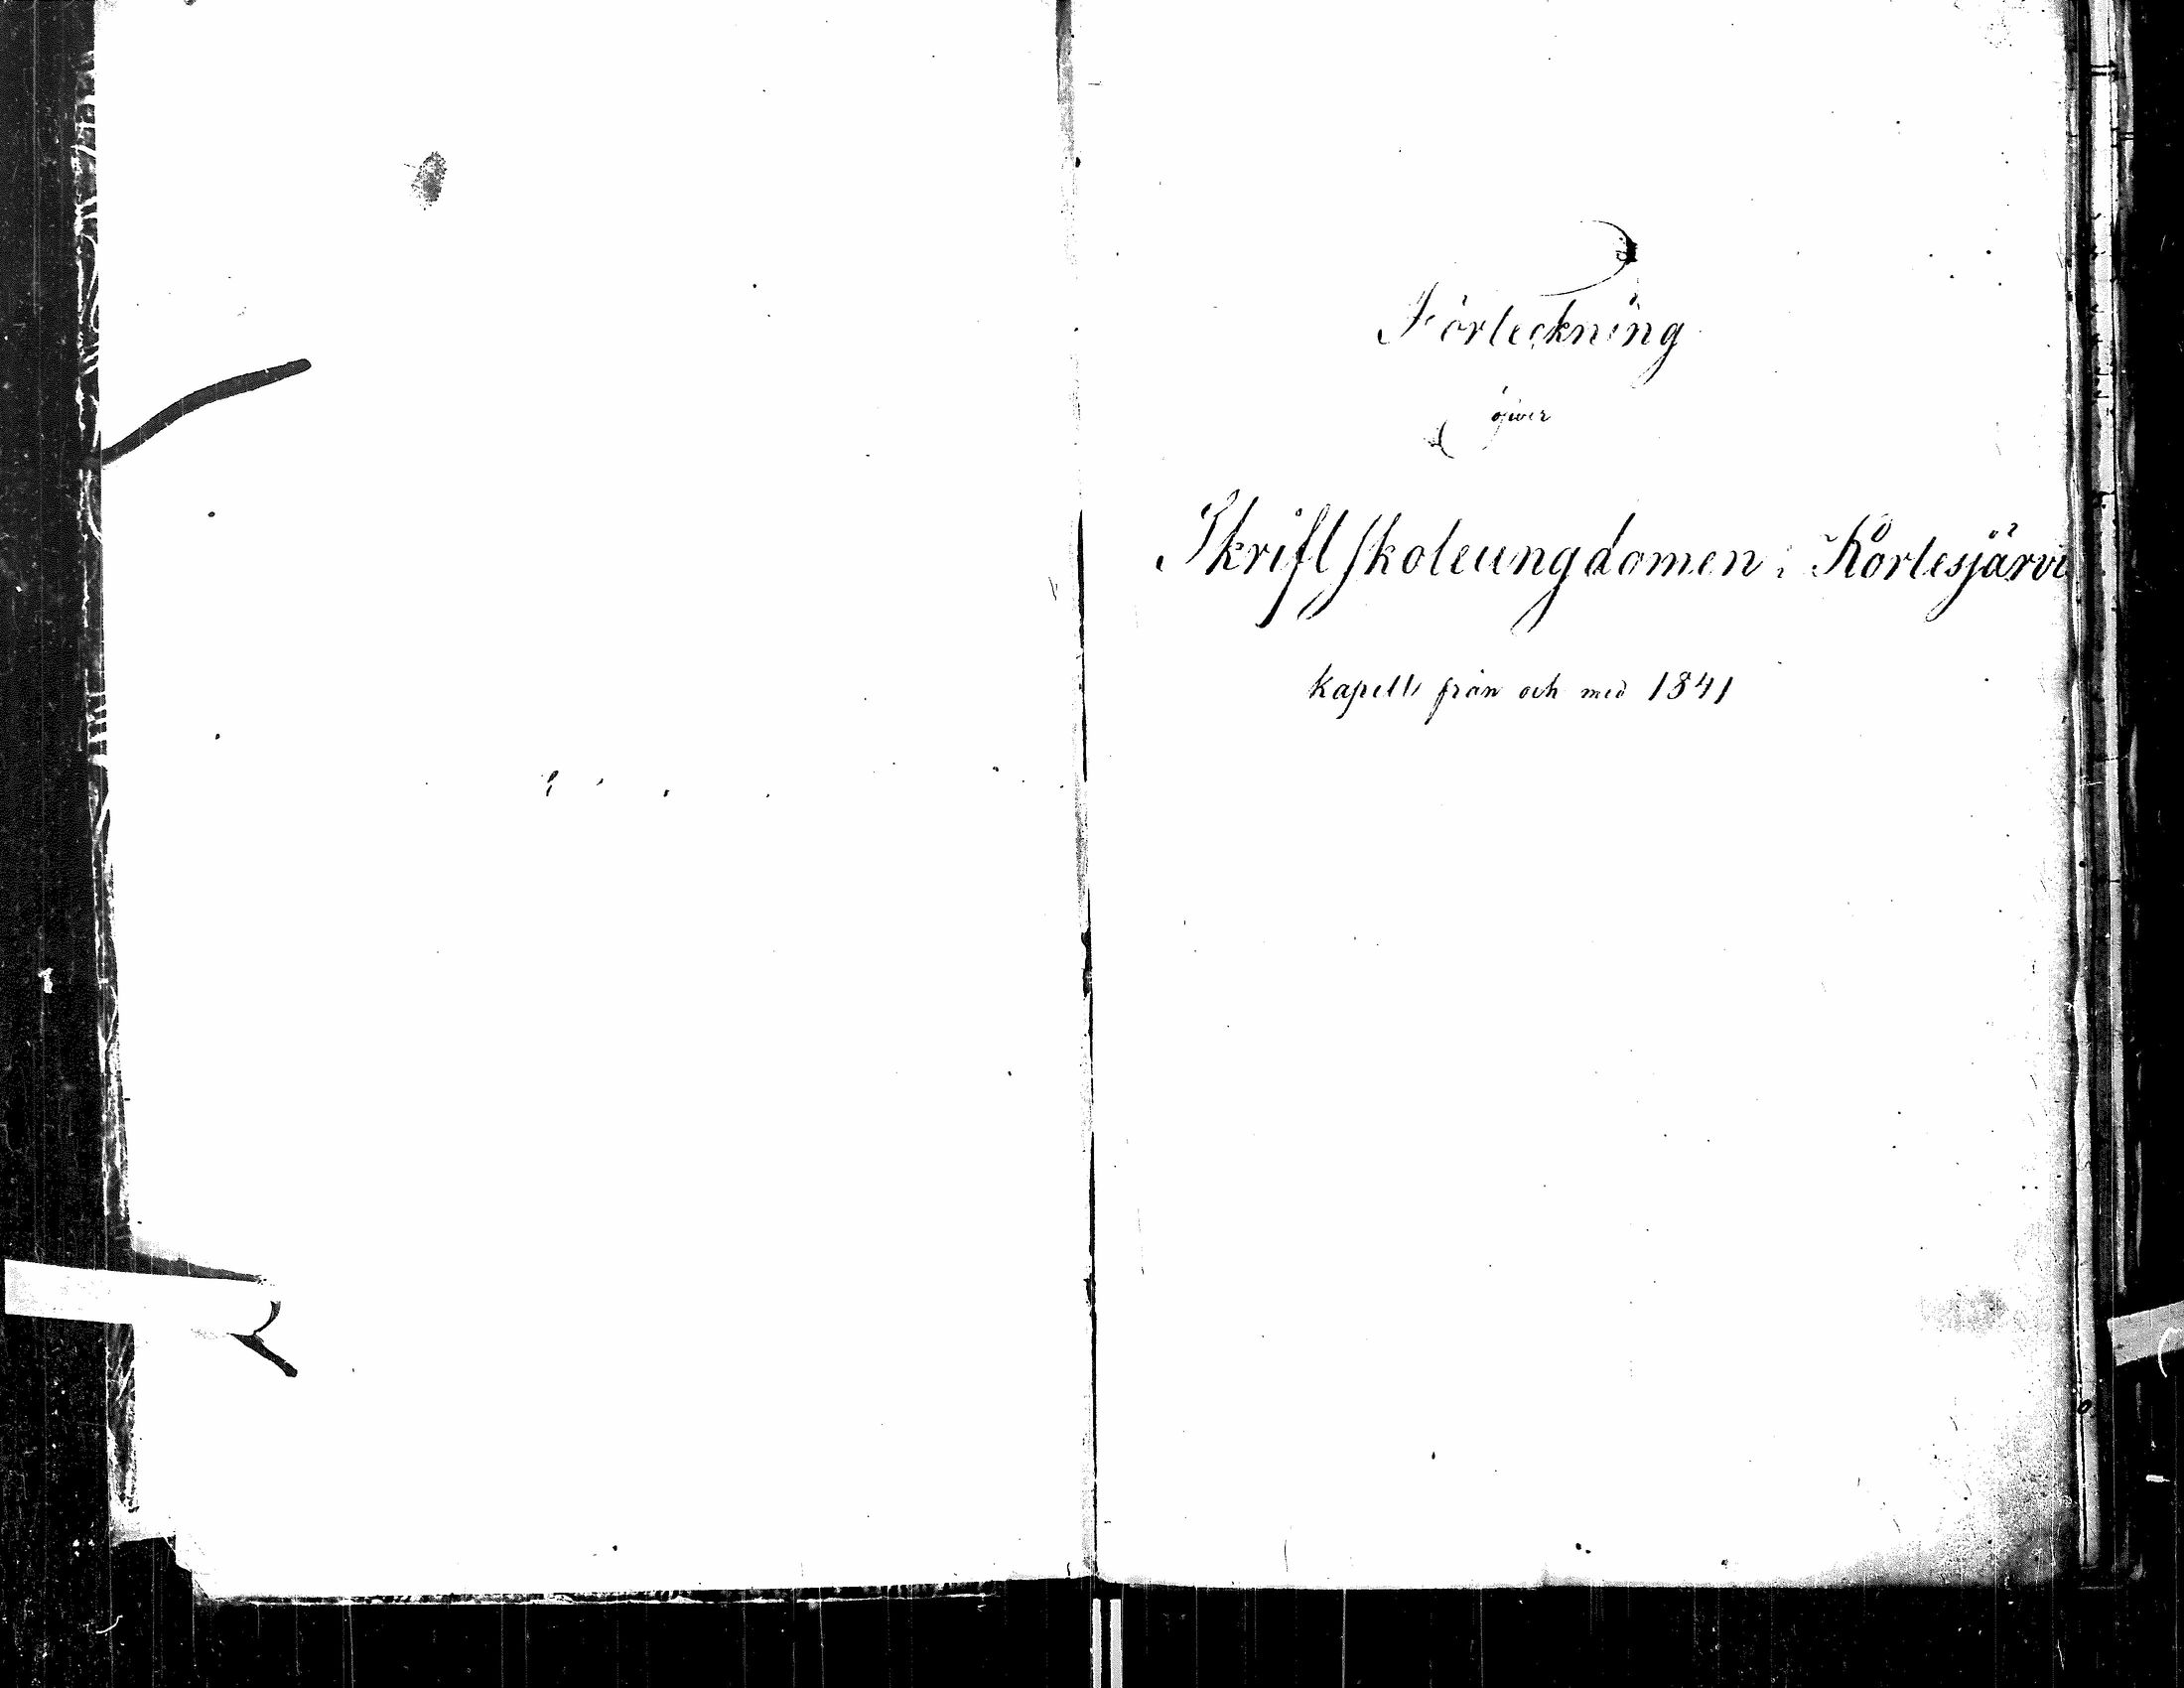 Förteckning
öfwer
Skriftskoleungdomen i Kortesjärvi
kapell från och med 1841